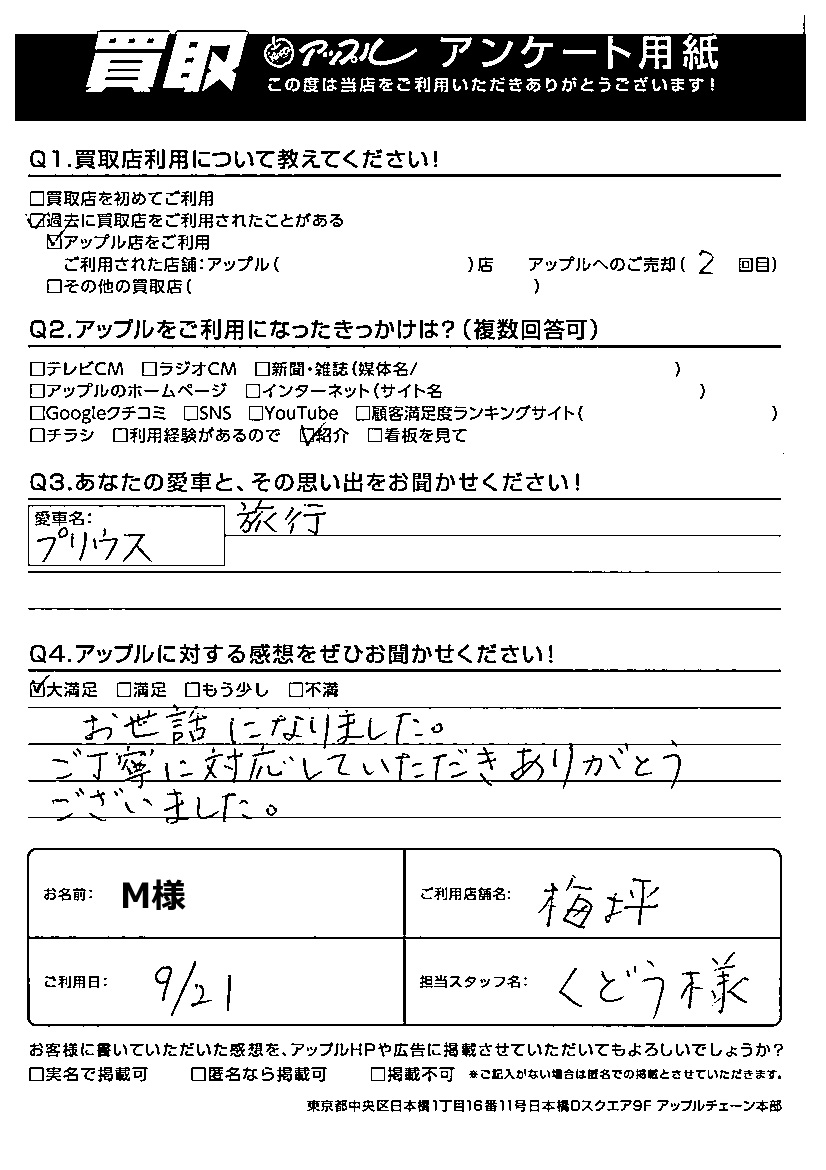 買取 アップル アンケート用紙
この度は当店をご利用いただきありがとうございます！
Q1.買取店利用について教えてください！
□買取店を初めてご利用
☑過去に買取店をご利用されたことがある
☑アップル店をご利用
ご利用された店舗：アップル（ ）店 アップルへのご売却（ 2 回目）
□その他の買取店（ ）
Q2.アップルをご利用になったきっかけは？（複数回答可）
□テレビCM □ラジオCM □新聞・雑誌（媒体名/ ）
□アップルのホームページ □インターネット（サイト名 ）
□Googleクチコミ □SNS □YouTube □顧客満足度ランキングサイト（ ）
□チラシ □利用経験があるので ☑紹介 □看板を見て
Q3.あなたの愛車と、その思い出をお聞かせください！
愛車名： 旅行
プリウス
Q4.アップルに対する感想をぜひお聞かせください！
☑大満足 □満足 □もう少し □不満
お世話になりました。
ご丁寧に対応していただきありがとう
ございました。
お名前： M様 ご利用店舗名： 梅坪
ご利用日： 9/21 担当スタッフ名： くどう様
お客様に書いていただいた感想を、アップルHPや広告に掲載させていただいてもよろしいでしょうか？
□実名で掲載可 □匿名なら掲載可 □掲載不可 ※ご記入がない場合は匿名での掲載とさせていただきます。
東京都中央区日本橋1丁目16番11号日本橋Dスクエア9F アップルチェーン本部